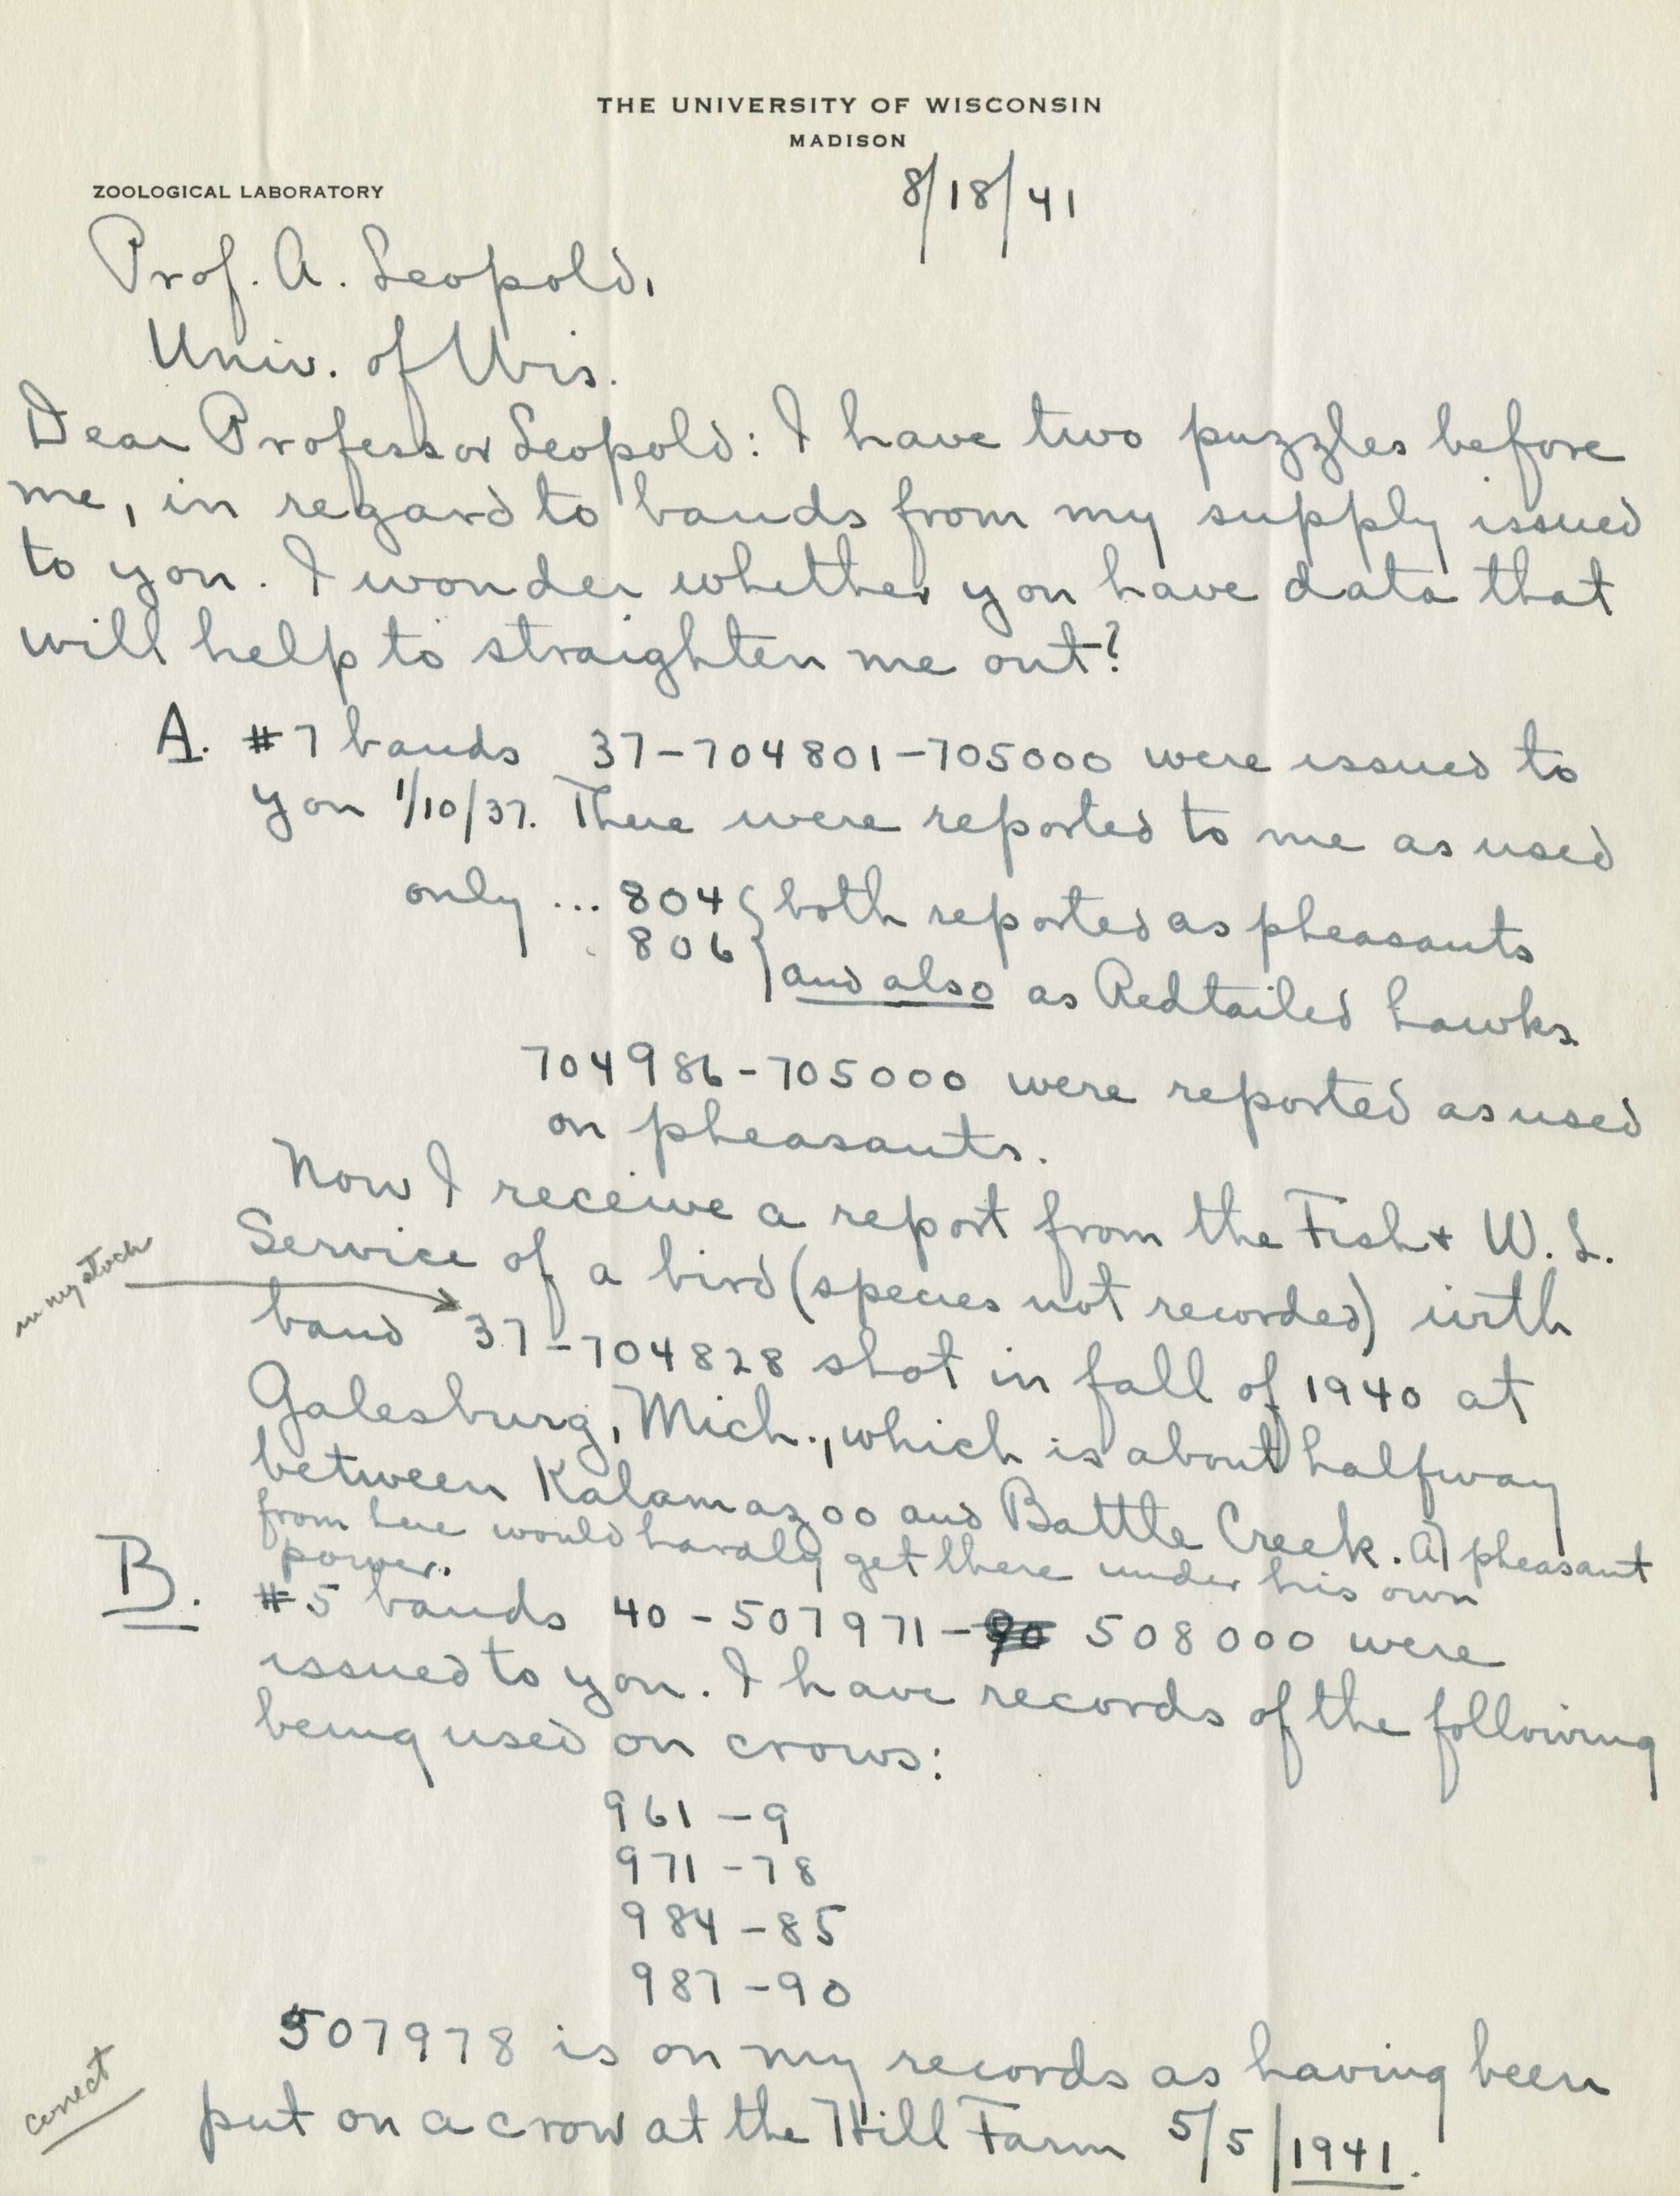 THE UNIVERSITY OF WISCONSIN
MADISON
8/18/41
ZOOLOGICAL LABORATORY
Prof. A. Leopold,
Univ. of Wis.
Dear Professor Leopold: I have two puzzles before
me, in regard to bands from my supply issued
to you. I wonder whether you have data that
will help to straighten me out?
A. #7 bands 37-704801-705000 were issued to
you 1/10/37. There were reported to me as used
only ... 804 } both reported as pheasants
806 } and also as Redtailed hawks.
704986-705000 were reported as used
on pheasants.
Now I receive a report from the Fish & W. L.
Service of a bird (species not recorded) with
in my stock
band 37-704828 shot in fall of 1940 at
Galesburg, Mich., which is about halfway
between Kalamazoo and Battle Creek. A pheasant
from here would hardly get there under his own
power.
B. #5 bands 40-507971-90 508000 were
issued to you. I have records of the following
being used on crows:
961-9
971-78
984-85
987-90
507978 is on my records as having been
correct
put on a crow at the Hill Farm 5/5/1941.